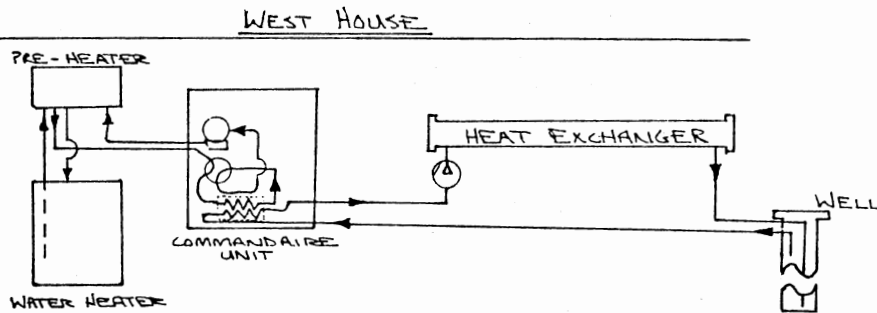 WEST HOUSE
PRE-HEATER
HEAT EXCHANGER
WELL
COMMANDAIRE
UNIT
WATER HEATER